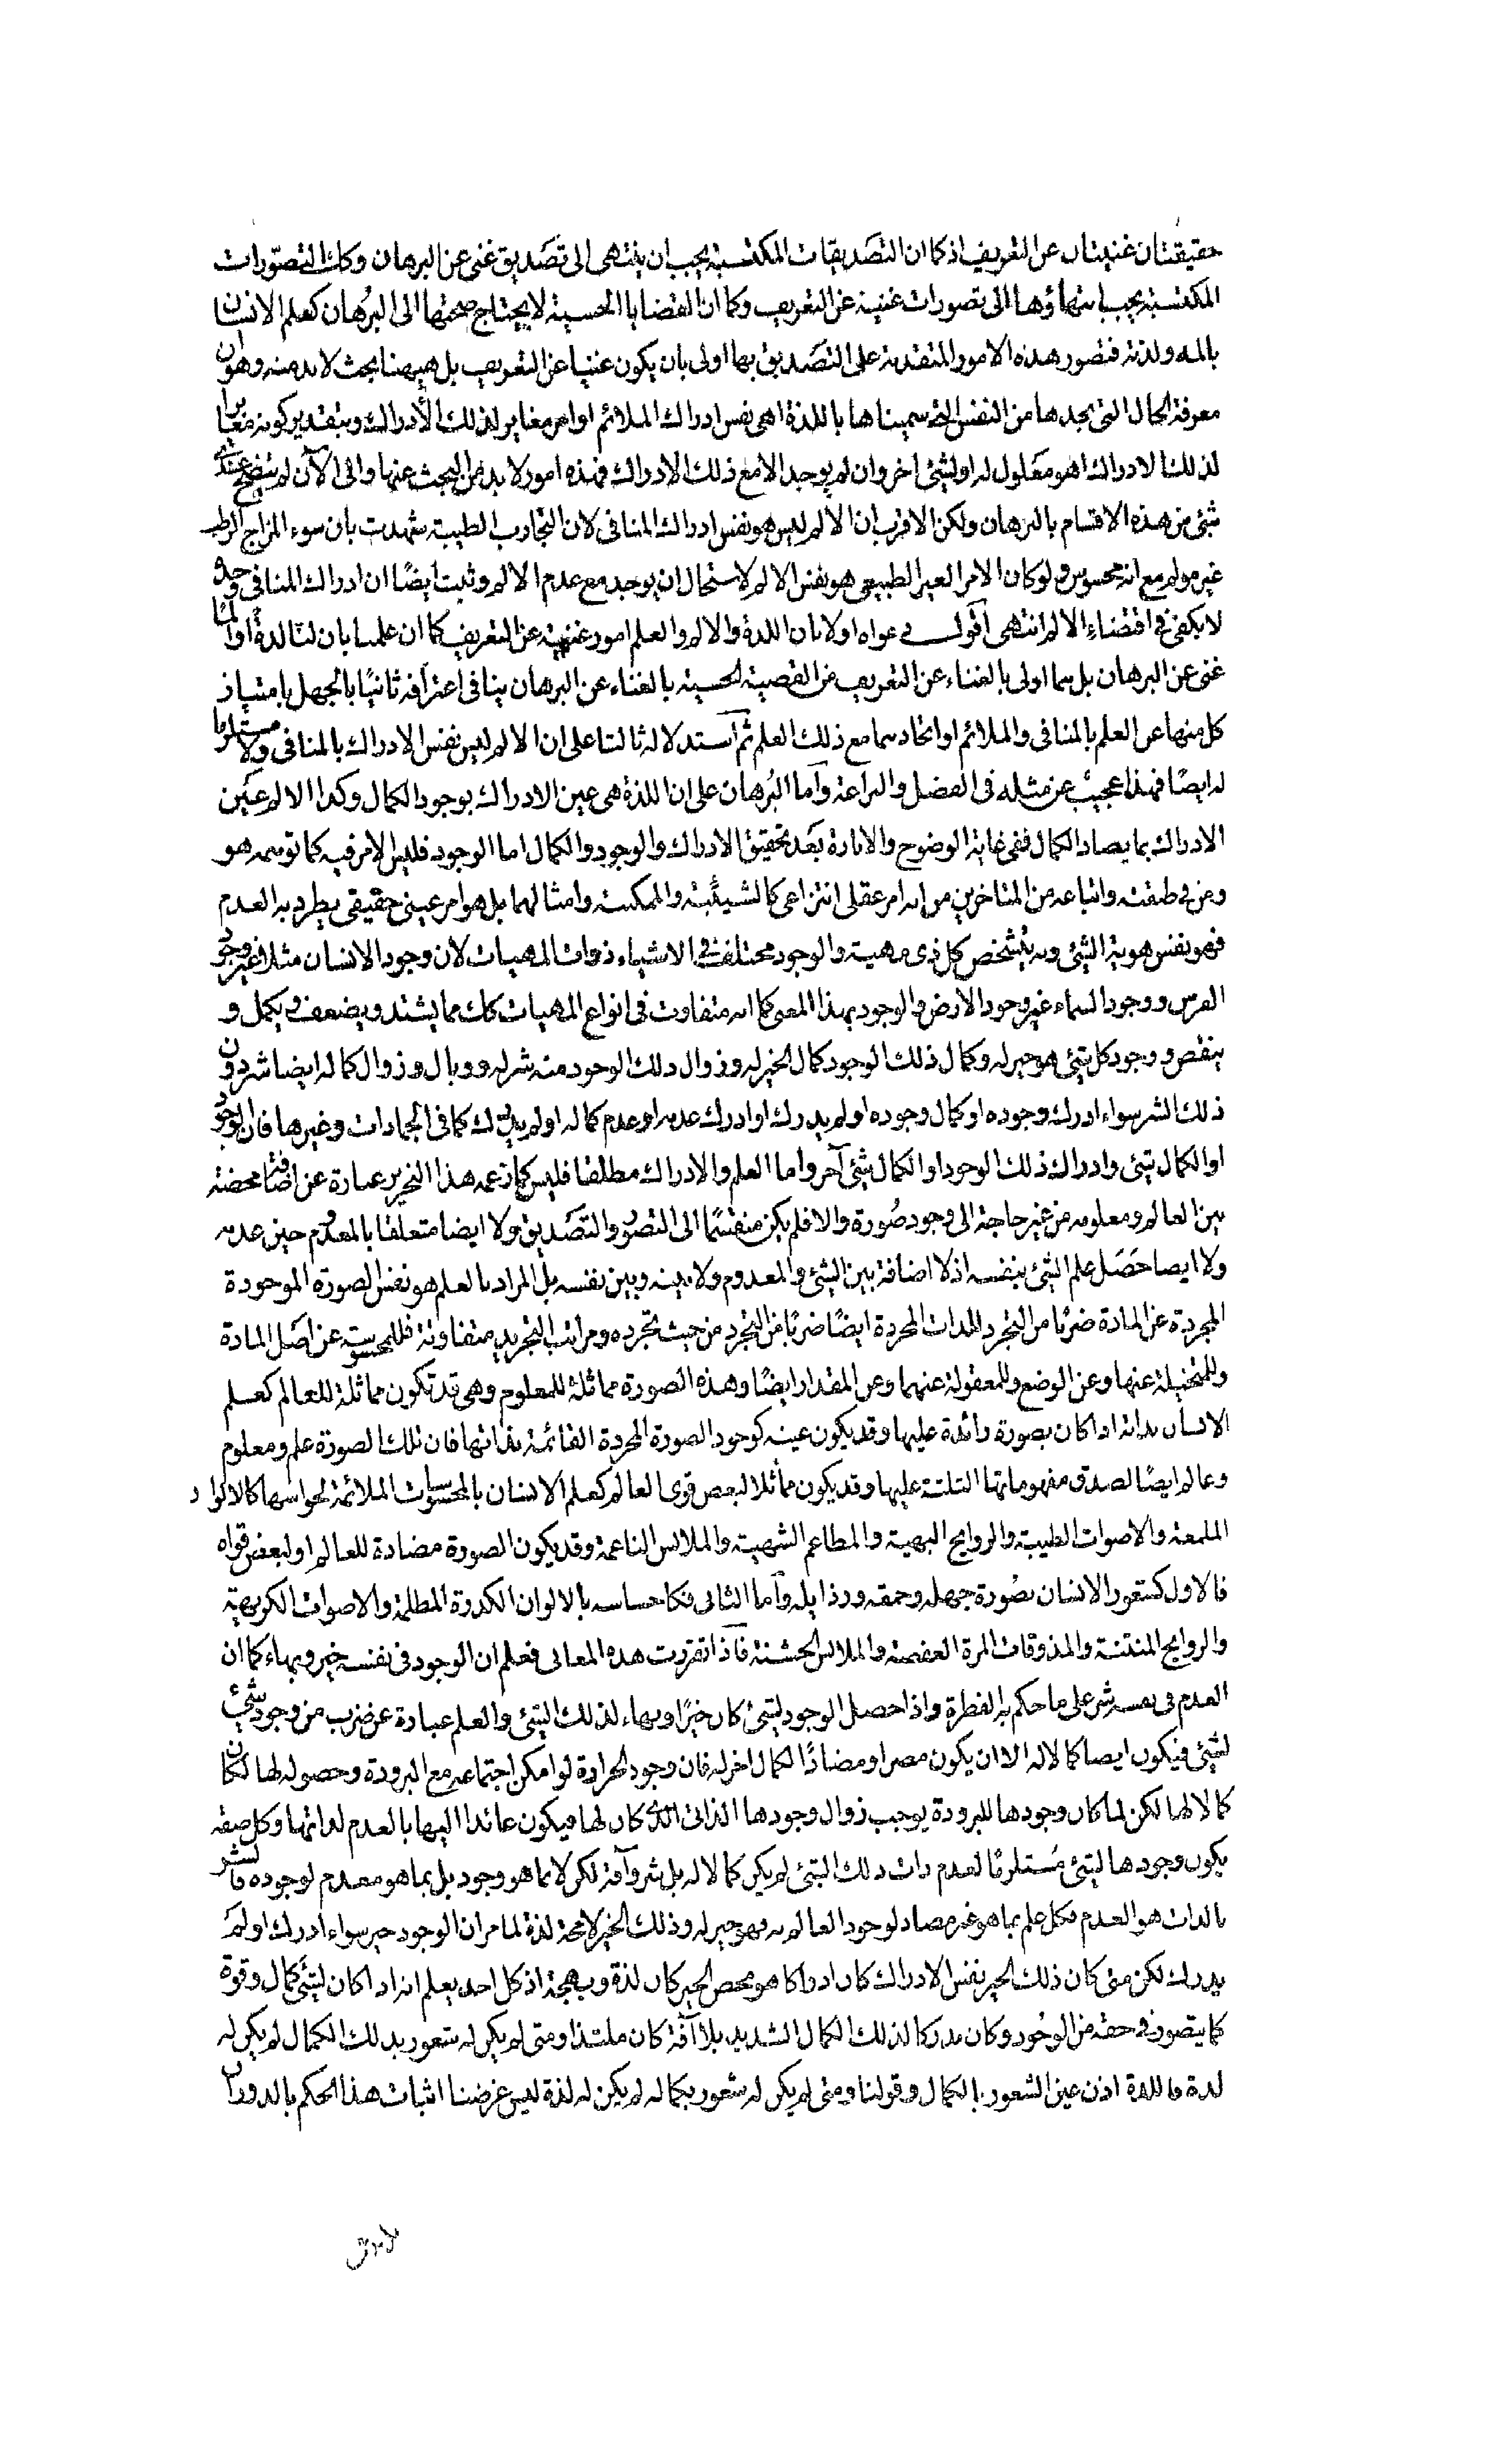 حقيقتان غنيتان عن التعريف اذ كما ان التصديقات المكتسبة يجب ان ينتهى الى تصديق غنى عن البرهان وكك التصورات
المكتسبة يجب انتهاؤها الى تصورات غنية عن التعريف وكما ان القضايا الحسية لا يحتاج صحتها الى البرهان كعلم الانسان
بالمه ولذته فتصور هذه الامور المتقدمة على التصديق بها اولى بان يكون غنيا عن التعريف بل هيهنا بحث لابد منه وهو ان
معرفة الحال التى يجدها من النفس التى سميناها باللذة اهى نفس ادراك الملائم او امر مغاير لذلك الأدراك وبتقدير كونه مغايرا
لذلك الادراك اهو معلول له او لشئ آخر وان لم يوجد الا مع ذلك الادراك فهذه امور لابد من البحث عنها والى الآن لم يتضح عندى
شئ من هذه الاقسام بالبرهان ولكن الاقرب ان الالم ليس هو نفس ادراك المنافى لان التجارب الطبية شهدت بان سوء المزاج الرطب
غير مولم مع انه محسوس ولو كان الامر الغير الطبيعى هو نفس الالم لاستحال ان يوجد مع عدم الالم وثبت ايضًا ان ادراك المنافى وحده
لا يكفى فى اقتضاء الالم انتهى اقول دعواه اولا بان اللذة والالم والعلم امور غنية عن التعريف كما ان علمنا بان لنا لذة او المًا
غنى عن البرهان بل هما اولى بالغناء عن التعريف من القضية الحسية بالغناء عن البرهان ينافى اعترافه ثانيًا بالجهل بامتياز
كل منها عن العلم بالمنافى والملائم او اتحادهما مع ذلك العلم ثم استدلاله ثالثا على ان الالم ليس نفس الادراك بالمنافى ولا مستلزما
له ايضًا فهذا عجيب عن مثله فى الفضل والبراعة واما البرهان على ان اللذة هى عين الادراك بوجود الكمال وكذا الالم عين
الادراك بما يضاد الكمال ففى غاية الوضوح والانارة بعد تحقيق الادراك والوجود والكمال اما الوجود فليس الامر فيه كما توهمه هو
ومن فى طبقته واتباعه من المتاخرين من انه امر عقلى انتزاعى كالشيئية والممكنية وامثالهما بل هو امر عينى حقيقى يطرد به العدم
فهو نفس هوية الشئ وبه يتشخص كل ذى مهية والوجود مختلف فى الاشياء ذوات المهيات لان وجود الانسان مثلا غير وجود
الفرس ووجود السماء غير وجود الارض والوجود بهذا المعنى كما انه متفاوت فى انواع المهيات كك مما يشتد ويضعف ويكمل و
ينقص ووجود كل شئ هو خير له وكمال ذلك الوجود كمال الخير له وزوال ذلك الوجود منه شر له ووبال وزوال كماله ايضا شر دون
ذلك الشر سواء ادرك وجوده او كمال وجوده او لم يدرك او ادرك عدمه او عدم كماله او لم يدرك كما فى الجمادات وغيرها فان الوجود
او الكمال شئ وادراك ذلك الوجود او الكمال شئ آخر واما العلم والادراك مطلقا فليس كما زعمه هذا النحرير عبارة عن اضافة محضة
بين العالم ومعلومه من غير حاجة الى وجود صورة والا فلم يكن منقسمًا الى التصور والتصديق ولا ايضا متعلقا بالمعدوم حين عدمه
ولا ايضا حصل علم الشئ بنفسه اذ لا اضافة بين الشئ والمعدوم ولا بينه وبين نفسه بل المراد بالعلم هو نفس الصورة الموجودة
المجردة عن المادة ضربًا من التجرد للذات المجردة ايضًا ضربًا من التجرد من حيث تجرده ومراتب التجريد متفاوتة فللمحسوسة عن اصل المادة
وللمتخيلة عنها وعن الوضع وللمعقولة عنهما وعن المقدار ايضًا وهذه الصورة مماثلة للمعلوم وهى قد تكون مماثلة للعالم كعلم
الانسان بذاته اذا كان بصورة زائدة عليها وقد يكون عينه كوجود الصورة المجردة القائمة بذاتها فان تلك الصورة علم ومعلوم
وعالم ايضًا لصدق مفهوماتها الثلثة عليها وقد يكون مماثلا لبعض قوى العالم كعلم الانسان بالمحسوسات الملائمة لحواسها كالالوان
الملمعة والاصوات الطيبة والروايح البهية والمطاعم الشهية والملابس الناعمة وقد يكون الصورة مضادة للعالم او لبعض قواه
فالاول كشعور الانسان بصورة جهله وحمقه ورذايله واما الثانى فكاحساسه بالالوان الكدرة المظلمة والاصوات الكريهة
والروايح المنتنة والمذوقات المرة العفصة والملابس الخشنة فاذا تقررت هذه المعانى فعلم ان الوجود فى نفسه خير وبهاء كما ان
العدم فى نفسه شر على ما حكم به الفطرة واذا حصل الوجود لشئ كان خيرًا وبهاء لذلك الشئ والعلم عبارة عن ضرب من وجود شئ
لشئ فيكون ايضا كمالا له الا ان يكون مضرا ومضادًا لكمال اخر له فان وجود الحرارة لو امكن اجتماعه مع البرودة وحصوله لها لكان
كمالا لها لكن لما كان وجودها للبرودة يوجب زوال وجودها الذاتى الذى كان لها فيكون عائدا اليها بالعدم لذاتها وكل صفة
يكون وجودها لشئ مستلزمًا لعدم ذات ذلك الشئ لم يكن كمالا له بل شر وآفة لكن لا بما هو وجود بل بما هو معدم لوجوده فالشر
بالذات هو العدم فكل علم بما هو غير مضاد لوجود العالم به فهو خير له وذلك الخير لا محة لذة لما مر ان الوجود خير سواء ادرك او لم
يدرك لكن متى كان ذلك الخير نفس الادراك كان ادراكا هو محض الخير كان لذة وبهجة اذ كل احد يعلم انه اذا كان لشئ كمال وقوة
كما يتصور فى حقه من الوجود وكان مدركا لذلك الكمال الشديد بلا آفة كان ملتذا ومتى لم يكن له شعور بذلك الكمال لم يكن له
لذة فاللذة اذن عين الشعور بالكمال وقولنا ومتى لم يكن له شعور بكماله لم يكن له لذة ليس غرضنا اثبات هذا الحكم بالدوران